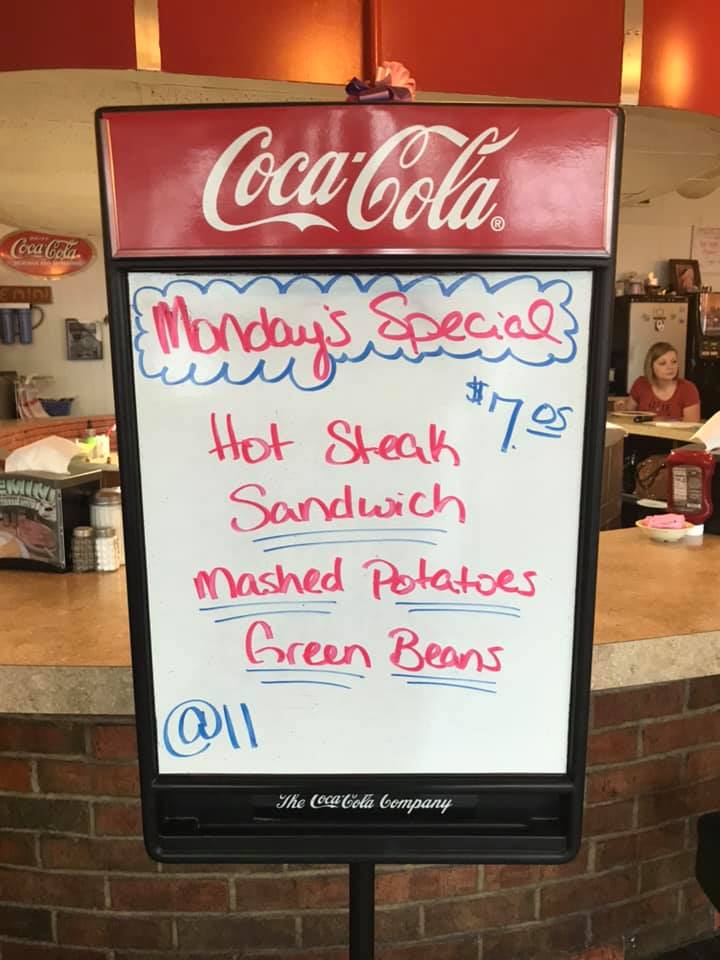 Coca-Cola®
DRINK
Coca-Cola
Monday's Special
$7.05
Hot Steak
Sandwich
Mashed Potatoes
Green Beans
@11
The Coca-Cola Company